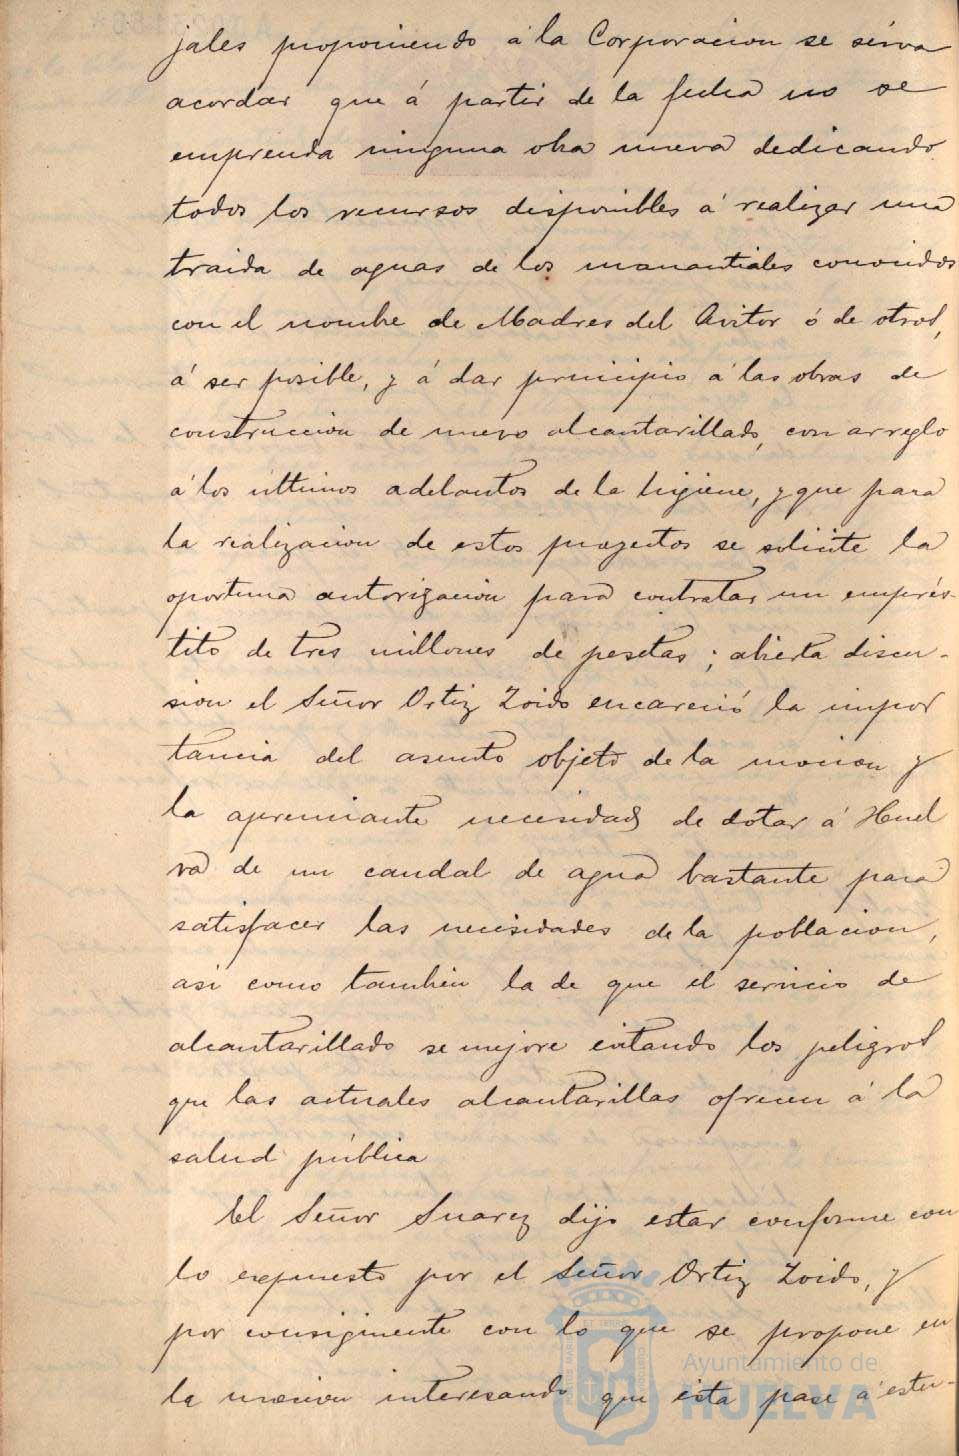 jales proponiendo á la Corporacion se sirva
acordar que á partir de la fecha no se
emprenda ninguna obra nueva dedicando
todos los recursos disponibles á realizar una
traida de aguas de los manantiales conocidos
con el nombre de Madres del Avitor ó de otros,
á ser posible, y á dar principio á las obras de
construccion de nuevo alcantarillado, con arreglo
á los últimos adelantos de la higiene, y que para
la realizacion de estos proyectos se solicite la
oportuna autorizacion para contratar un emprés-
tito de tres millones de pesetas; abierta discu-
sion el Señor Ortiz Zoido encareció la impor
tancia del asunto objeto de la mocion y
la apremiante necesidad de dotar á Huel
va de un caudal de agua bastante para
satisfacer las necesidades de la poblacion,
asi como tambien la de que el servicio de
alcantarillado se mejore evitando los peligros
que las actuales alcantarillas ofrecen á la
salud pública
El Señor Suarez dijo estar conforme con
lo expuesto por el Señor Ortiz Zoido, y
por consiguiente con lo que se propone en
la mocion interesando que ésta pase á estu-
Ayuntamiento de
HUELVA